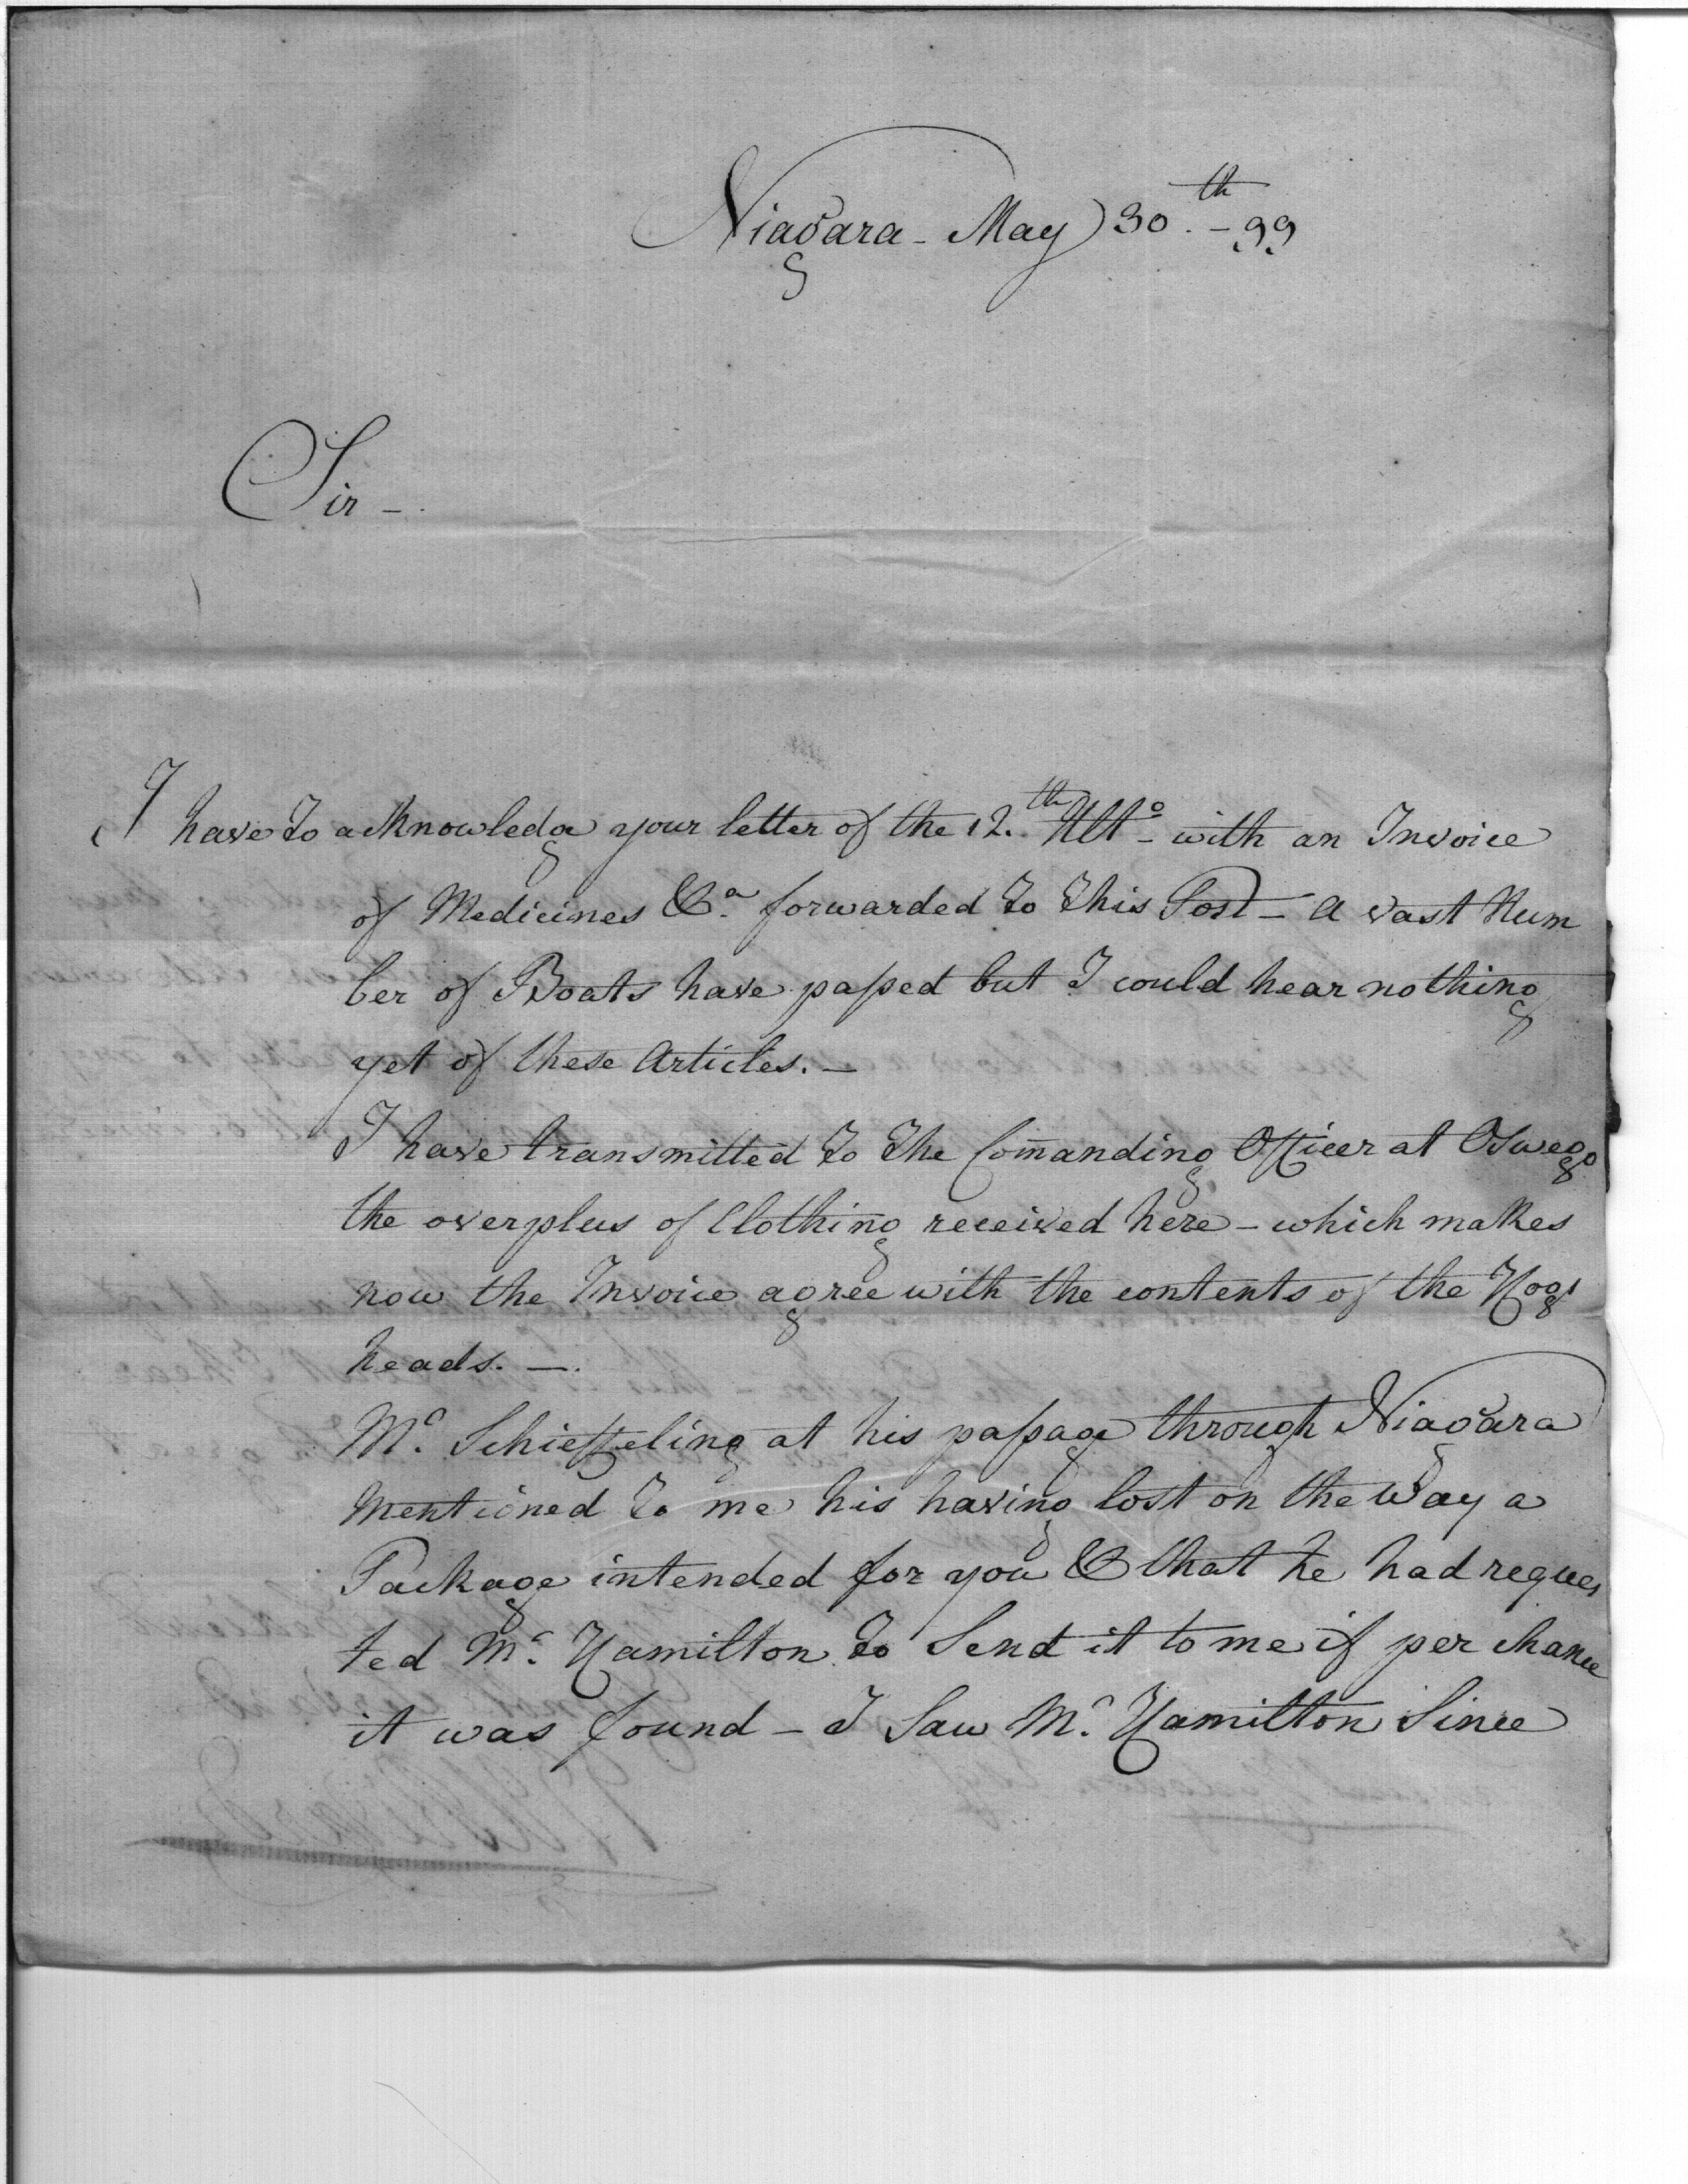 Niagara - May 30th. - 99
Sir -.
I have to acknowledge your letter of the 12.th Ulto - with an Invoice
of Medicines &a. forwarded to this Post - a vast Num
ber of Boats have passed but I could hear nothing
yet of these Articles. -
I have transmitted to the Com̄anding Officer at Oswego
the overplus of Clothing received here - which makes
now the Invoice agree with the contents of the Hogs
heads. -.
Mr. Schieffeling at his passage through Niagara
Mentioned to me his having lost on the Way a
Package intended for you & that he had reques
ted Mr. Hamilton to Send it to me if per chance
it was found - I Saw Mr. Hamilton Since